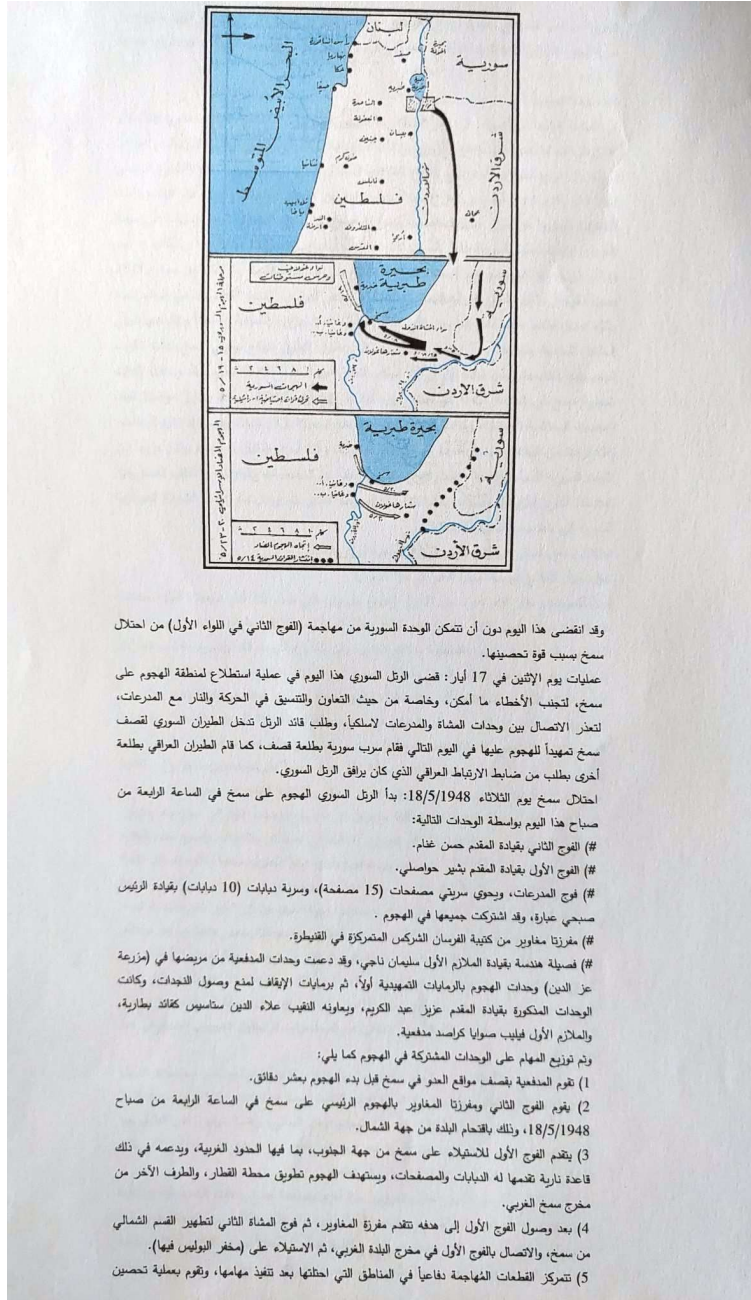 لبنان
رأس الناقورة
نهاريا
عكا
حيفا
صفد
طبرية
سورية
البحر الأبيض المتوسط
الناصرة
العفولة
بيسان
جنين
نتانيا
طول كرم
نابلس
فلسطين
نهر الأردن
شرق الأردن
تل أبيب
يافا
اللد
الرملة
اللطرون
أريحا
القدس
عمان
بحيرة طبرية
طبرية
فلسطين
سمخ
دغانيا.أ.
دغانيا.ب.
سورية
شرق الأردن
٠ ٢ ٤ ٦ ٨ ١٠ كم
الهجمات السورية
بحيرة طبرية
فلسطين
سمخ
دغانيا.أ.
دغانيا.ب.
سورية
شرق الأردن
الهجوم المضاد الإسرائيلي ٢٠-٥/٢٣
٠ ٢ ٤ ٦ ٨ ١٠ كم
إتجاه الهجوم المضاد
انتشار القوات السورية ٥/١٤
وقد انقضى هذا اليوم دون أن تتمكن الوحدة السورية من مهاجمة (الفوج الثاني في اللواء الأول) من احتلال
سمخ بسبب قوة تحصينها.
عمليات يوم الإثنين في 17 أيار: قضى الرتل السوري هذا اليوم في عملية استطلاع لمنطقة الهجوم على
سمخ، لتجنب الأخطاء ما أمكن، وخاصة من حيث التعاون والتنسيق في الحركة والنار مع المدرعات،
لتعذر الاتصال بين وحدات المشاة والمدرعات لاسلكياً، وطلب قائد الرتل تدخل الطيران السوري لقصف
سمخ تمهيداً للهجوم عليها في اليوم التالي فقام سرب سورية بطلعة قصف، كما قام الطيران العراقي بطلعة
أخرى بطلب من ضابط الارتباط العراقي الذي كان يرافق الرتل السوري.
احتلال سمخ يوم الثلاثاء 18/5/1948: بدأ الرتل السوري الهجوم على سمخ في الساعة الرابعة من
صباح هذا اليوم بواسطة الوحدات التالية:
#) الفوج الثاني بقيادة المقدم حسن غنام.
#) الفوج الأول بقيادة المقدم بشير حواصلي.
#) فوج المدرعات، ويحوي سريتي مصفحات (15 مصفحة)، وسرية دبابات (10 دبابات) بقيادة الرئيس
صبحي عبارة، وقد اشتركت جميعها في الهجوم .
#) مفرزتا مغاوير من كتيبة الفرسان الشركس المتمركزة في القنيطرة.
#) فصيلة هندسة بقيادة الملازم الأول سليمان ناجي، وقد دعمت وحدات المدفعية من مربضها في (مزرعة
عز الدين) وحدات الهجوم بالرمايات التمهيدية أولاً، ثم برمايات الإيقاف لمنع وصول النجدات، وكانت
الوحدات المذكورة بقيادة المقدم عزيز عبد الكريم، ويعاونه النقيب علاء الدين ستاسيس كقائد بطارية،
والملازم الأول فيليب صوايا كراصد مدفعية.
وتم توزيع المهام على الوحدات المشتركة في الهجوم كما يلي:
1) تقوم المدفعية بقصف مواقع العدو في سمخ قبل بدء الهجوم بعشر دقائق.
2) يقوم الفوج الثاني ومفرزتا المغاوير بالهجوم الرئيسي على سمخ في الساعة الرابعة من صباح
18/5/1948، وذلك باقتحام البلدة من جهة الشمال.
3) يتقدم الفوج الأول للاستيلاء على سمخ من جهة الجنوب، بما فيها الحدود الغربية، ويدعمه في ذلك
قاعدة نارية تقدمها له الدبابات والمصفحات، ويستهدف الهجوم تطويق محطة القطار، والطرف الآخر من
مخرج سمخ الغربي.
4) بعد وصول الفوج الأول إلى هدفه تتقدم مفرزة المغاوير، ثم فوج المشاة الثاني لتطهير القسم الشمالي
من سمخ، والاتصال بالفوج الأول في مخرج البلدة الغربي، ثم الاستيلاء على (مخفر البوليس فيها).
5) تتمركز القطعات المُهاجمة دفاعياً في المناطق التي احتلتها بعد تنفيذ مهامها، وتقوم بعملية تحصين